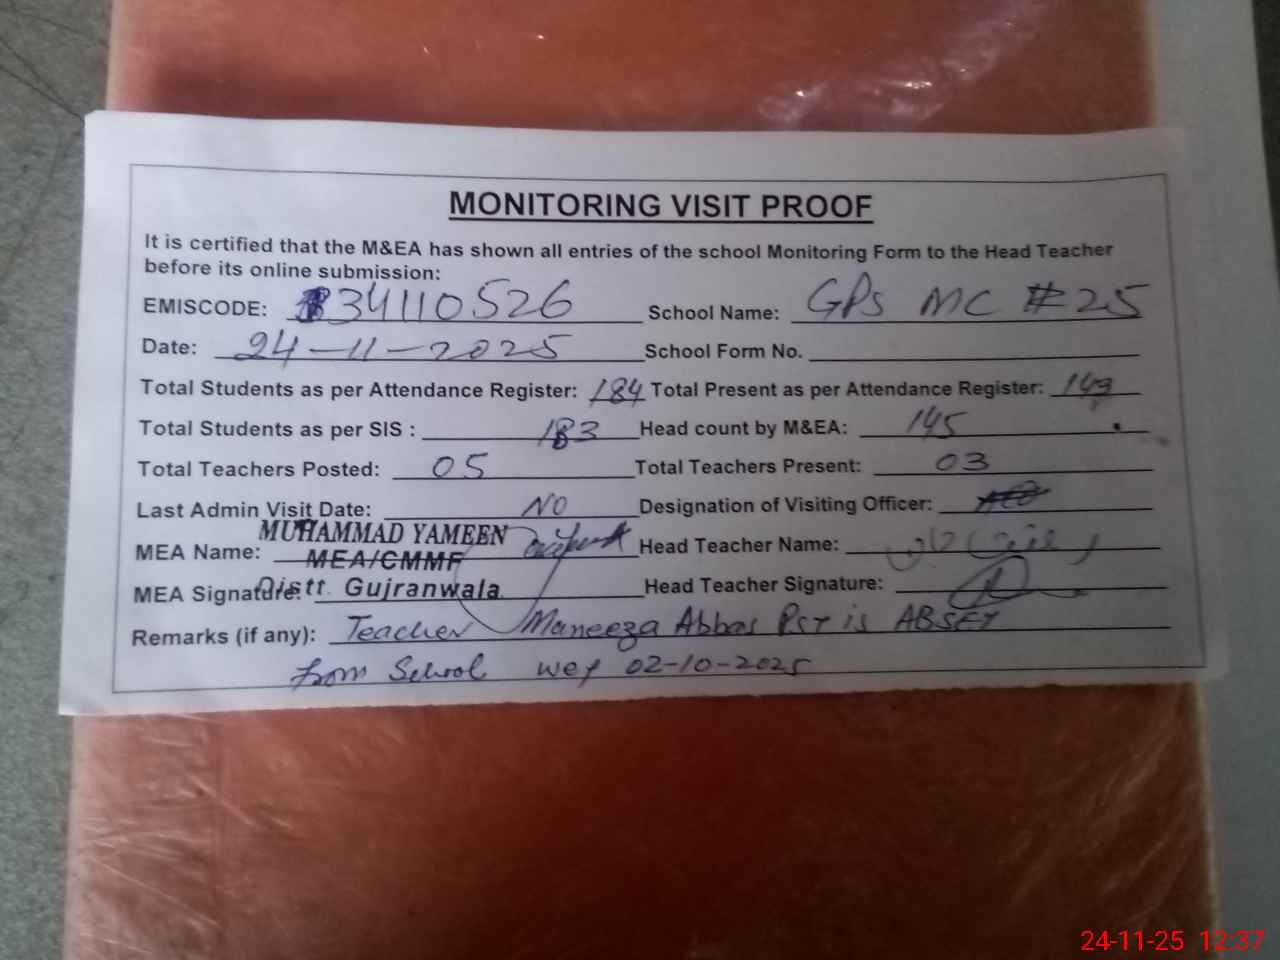 MONITORING VISIT PROOF
It is certified that the M&EA has shown all entries of the school Monitoring Form to the Head Teacher
before its online submission:
EMISCODE: 34110526 School Name: GPS MC #25
Date: 24-11-2025 School Form No.
Total Students as per Attendance Register: 184 Total Present as per Attendance Register: 143
Total Students as per SIS : 183 Head count by M&EA: 145
Total Teachers Posted: 05 Total Teachers Present: 03
Last Admin Visit Date: NO Designation of Visiting Officer:
MUHAMMAD YAMEEN
MEA Name: MEA/CMMF Head Teacher Name:
MEA Signature: Distt. Gujranwala. Head Teacher Signature:
Remarks (if any): Teacher Maneeza Abbas PST is ABSET
from School wef 02-10-2025
24-11-25 12:37